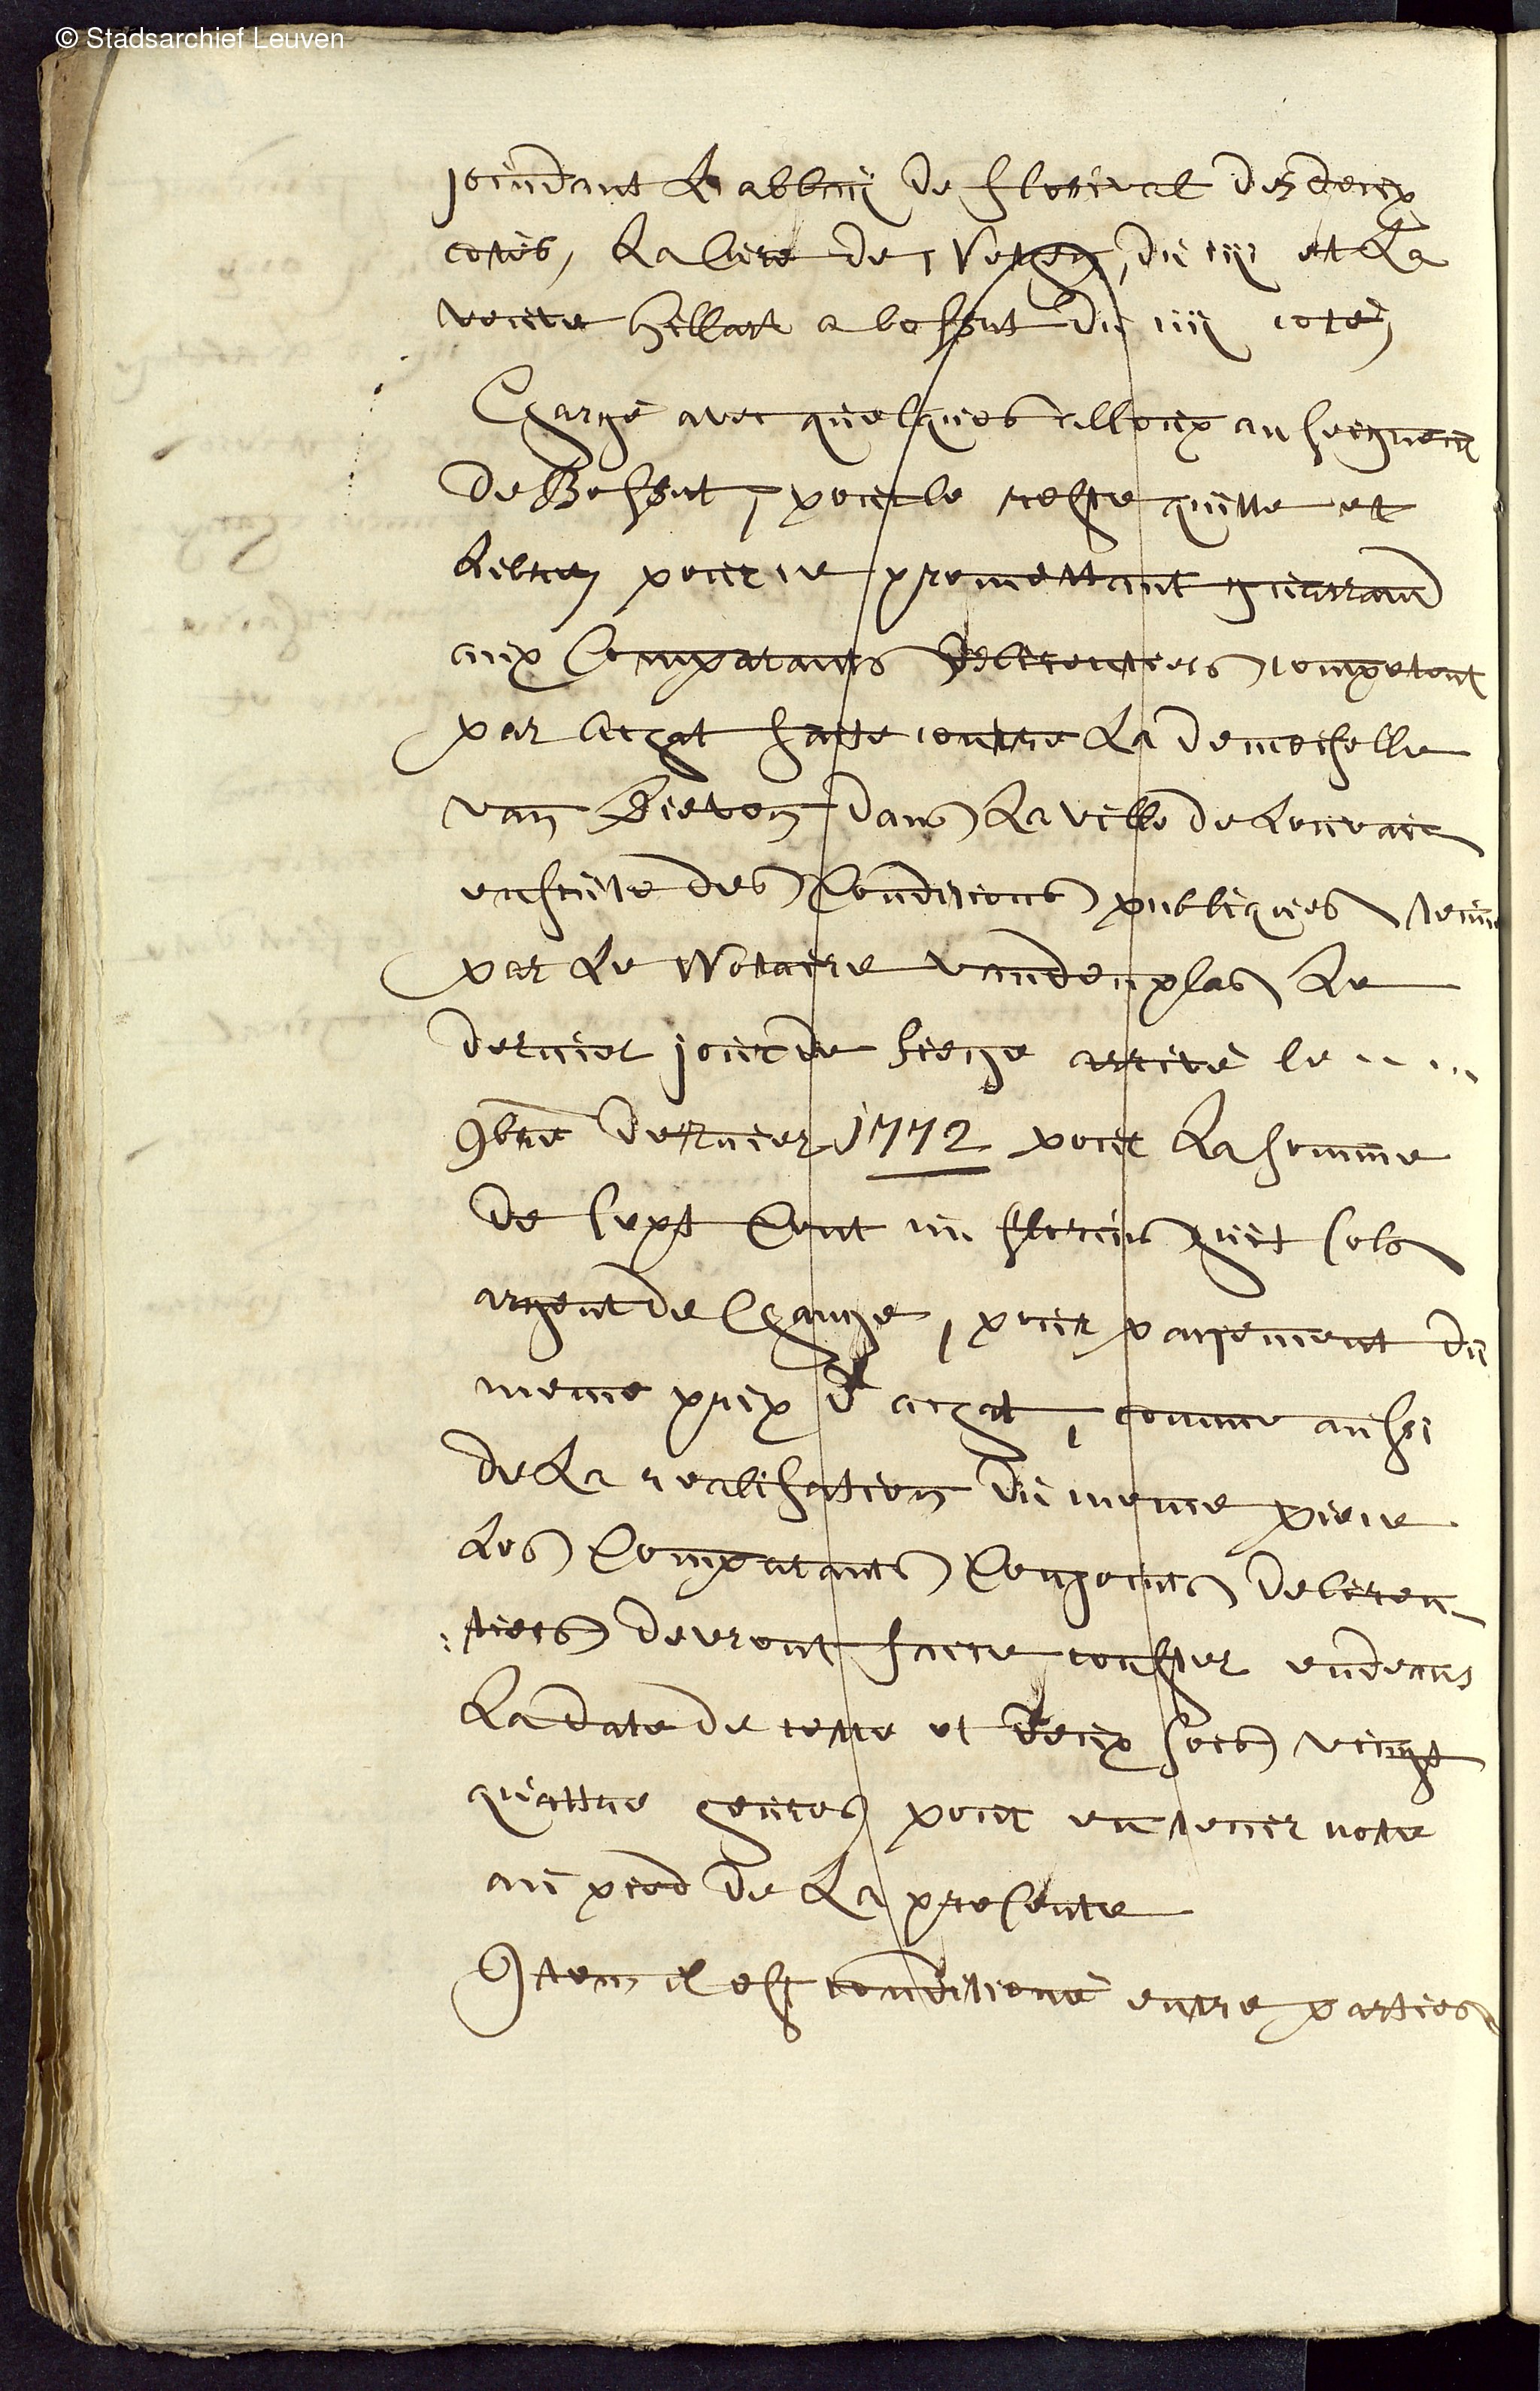 © Stadsarchief Leuven
joindant L'abbaij de florival des deux
cotés, La cure de Netgen, du iij et La
veuve hillart a bossut du iiij coté,
Chargé avec quelques cilloux au seigneur
de Bossut, pour le reste quitte et
Libre, pour ce promettant guarrand
aux Comparants debirentiers competent
par achat faitte contre La demoiselle
van Dieven dans La ville de Louvain
ensuite des Conditions publiques tenue
par Le Notaire vandenplas Le
dernier jour de siege arrivé le .. ...
9bre dernier 1772 pour La somme
de sept Cent un florins huit sols
argent de Change, pour payement du
meme prix d'achat, comme aussi
de La realisation du meme piece
Les Comparants Conjoints debiren-
:tiers devront faire conster endeans
La date de cette et deux fois vingt
quattre heures pour en tenir note
au pied de La presente
Item il est conditioné entre parties